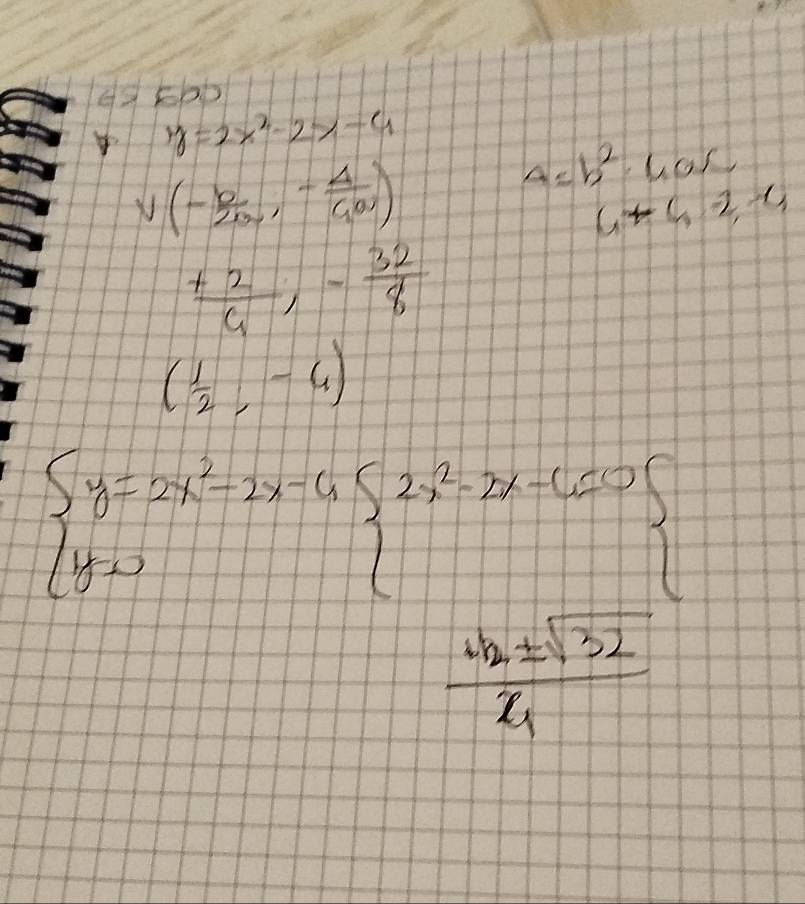 y = 2x² - 2x - 4
V(-b/2a, -Δ/4a)
Δ = b² - 4ac
4 + 4 · 2, -4
+2/4, -32/8
(1/2, -4)
{y = 2x² - 2x - 4 {2x² - 2x - 4 = 0 {
{y = 0
± √32
4